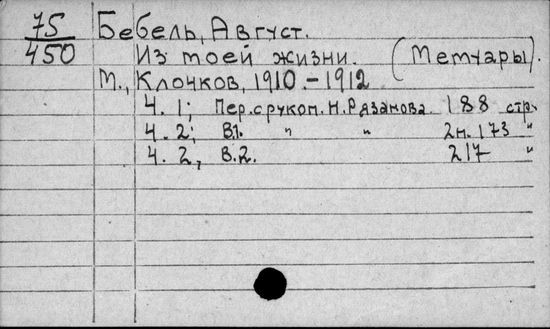 75
450
Бебель, Август.
Из моей жизни. (Мемуары).
М., Клочков, 1910.-1912
Ч. 1; Пер. с рукоп. Н. Рязанова 188 стр.
Ч. 2; В.1. " " 2н. 173 "
Ч. 2, В.2. 217 "